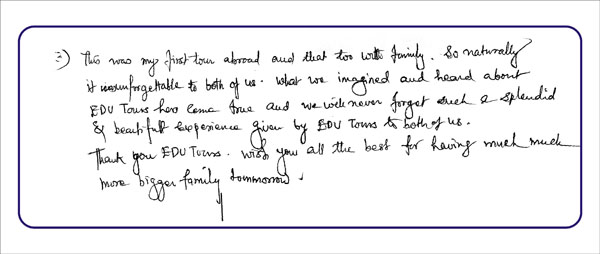 3) This was my first tour abroad and that too with family. So naturally
it was unforgettable to both of us. What we imagined and heard about
EDU Tours has come true and we will never forget such a splendid
& beautiful experience given by EDU Tours to both of us.
Thank you EDU Tours. Wish you all the best for having much much
more bigger family tommorrow.